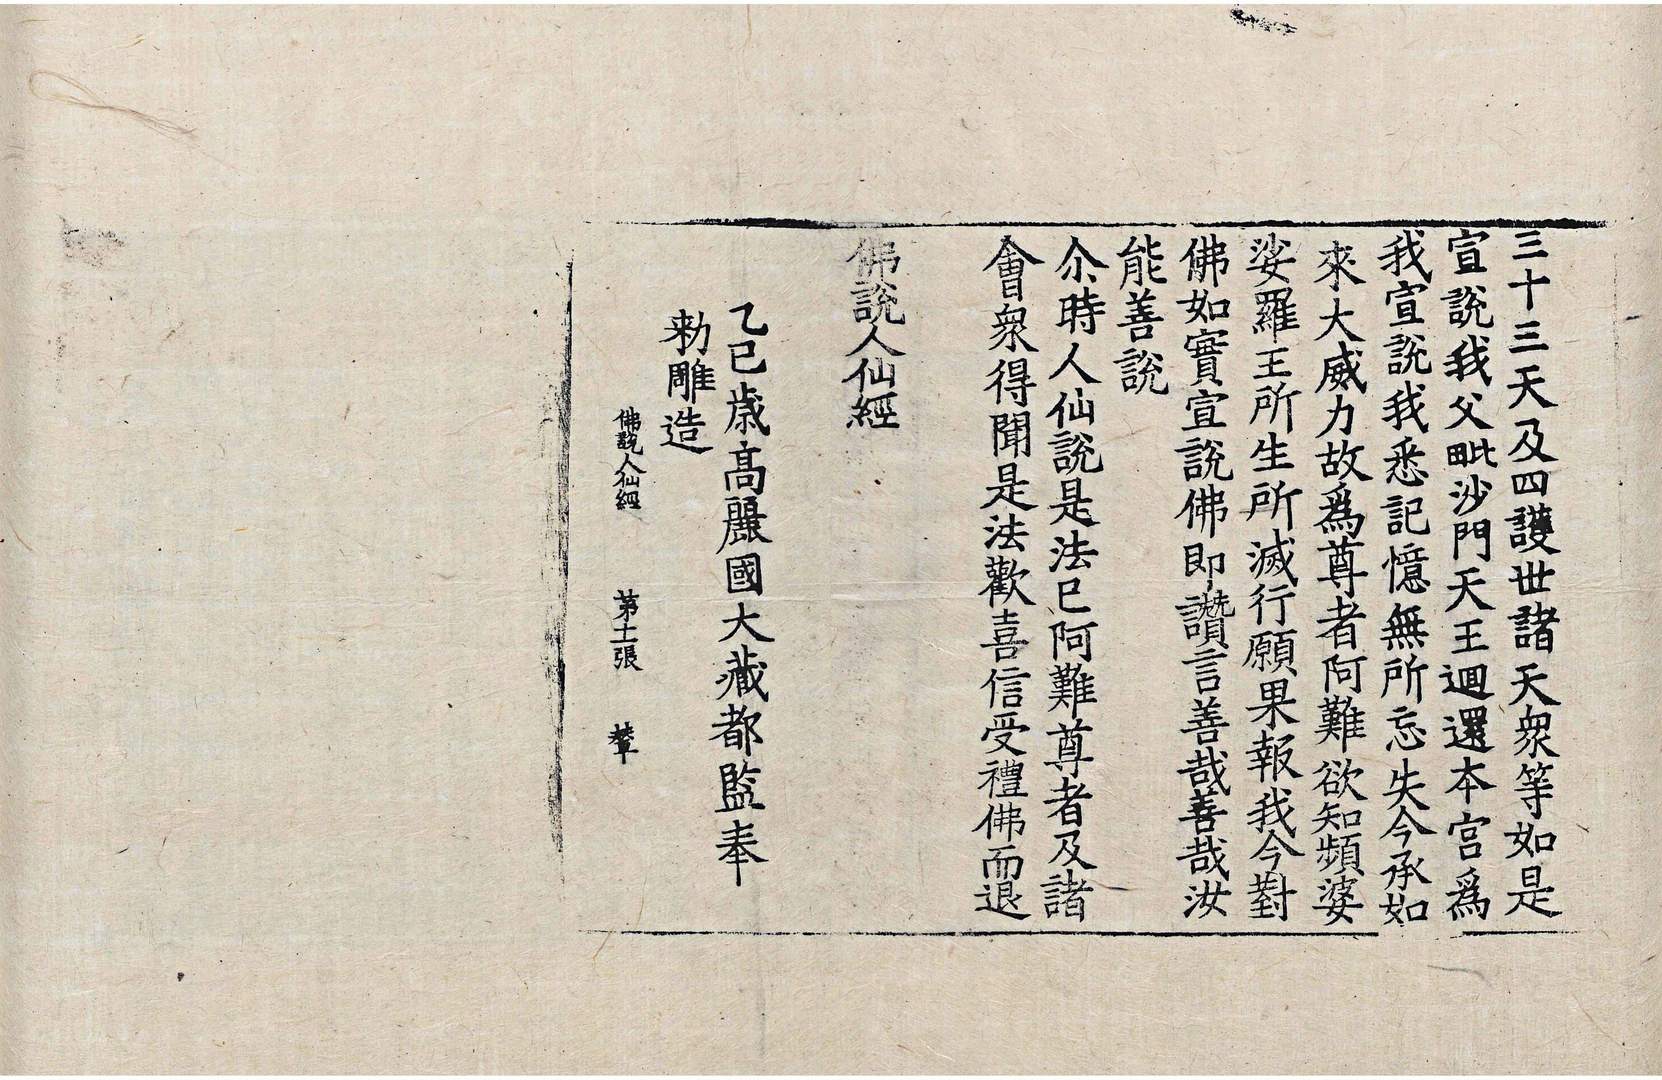 三十三天及四護世諸天衆等如是
宣說我父毗沙門天王迴還本宮爲
我宣說我悉記憶無所忘失今承如
來大威力故爲尊者阿難欲知頻婆
娑羅王所生所滅行願果報我今對
佛如實宣說佛即讚言善哉善哉汝
能善說
尒時人仙說是法已阿難尊者及諸
會衆得聞是法歡喜信受禮佛而退
佛說人仙經
乙巳歲高麗國大藏都監奉
勅雕造
佛說人仙經 第十一張 輦